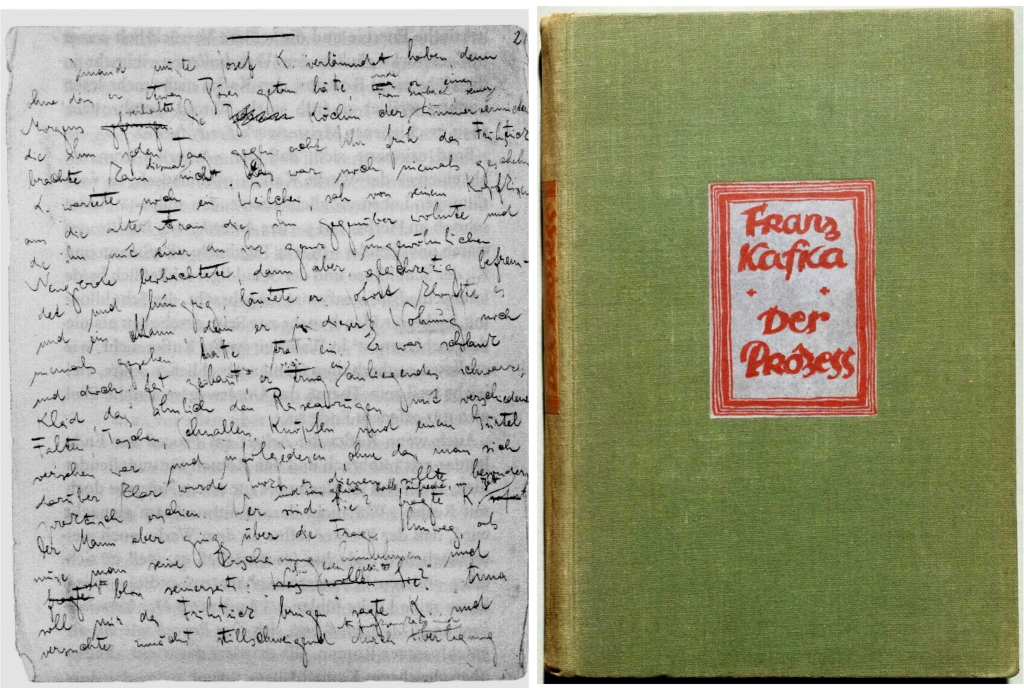 2
Jemand musste Josef K. verläumdet haben, denn
ohne dass er etwas Böses getan hätte, wurde er eines
Morgens verhaftet. Die Köchin der Frau Grubach seiner Zimmervermieterin
die ihm jeden Tag gegen acht Uhr früh das Frühstück
brachte kam diesmal nicht. Das war noch niemals geschehn
K. wartete noch ein Weilchen sah von seinem Kopfkissen
aus die alte Frau die ihm gegenüber wohnte und
die ihn mit einer an ihr ganz ungewöhnlichen
Neugierde beobachtete, dann aber gleichzeitig befrem-
det und hungrig läutete er. Sofort klopfte es
und ein Mann, den er in dieser Wohnung noch
niemals gesehen hatte trat ein. Er war schlank
und doch fest gebaut, er trug ein anliegendes schwarzes
Kleid, das ähnlich den Reiseanzügen mit verschiedenen
Falten, Taschen, Schnallen, Knöpfen und einem Gürtel
versehen war und infolgedessen, ohne dass man sich
darüber klar wurde, wozu es dienen sollte, besonders
praktisch erschien. Wer sind Sie? fragte K. und sass gleich halb aufrecht im Bett
Der Mann aber ging über die Frage hinweg, als
müsse man seine Erscheinung hinnehmen und
sagte bloss seinerseits: Sie haben geläutet? Anna
soll mir das Frühstück bringen sagte K. und
versuchte zunächst stillschweigend durch Aufmerksamkeit und Überlegung
Franz
Kafka
Der
Prozess